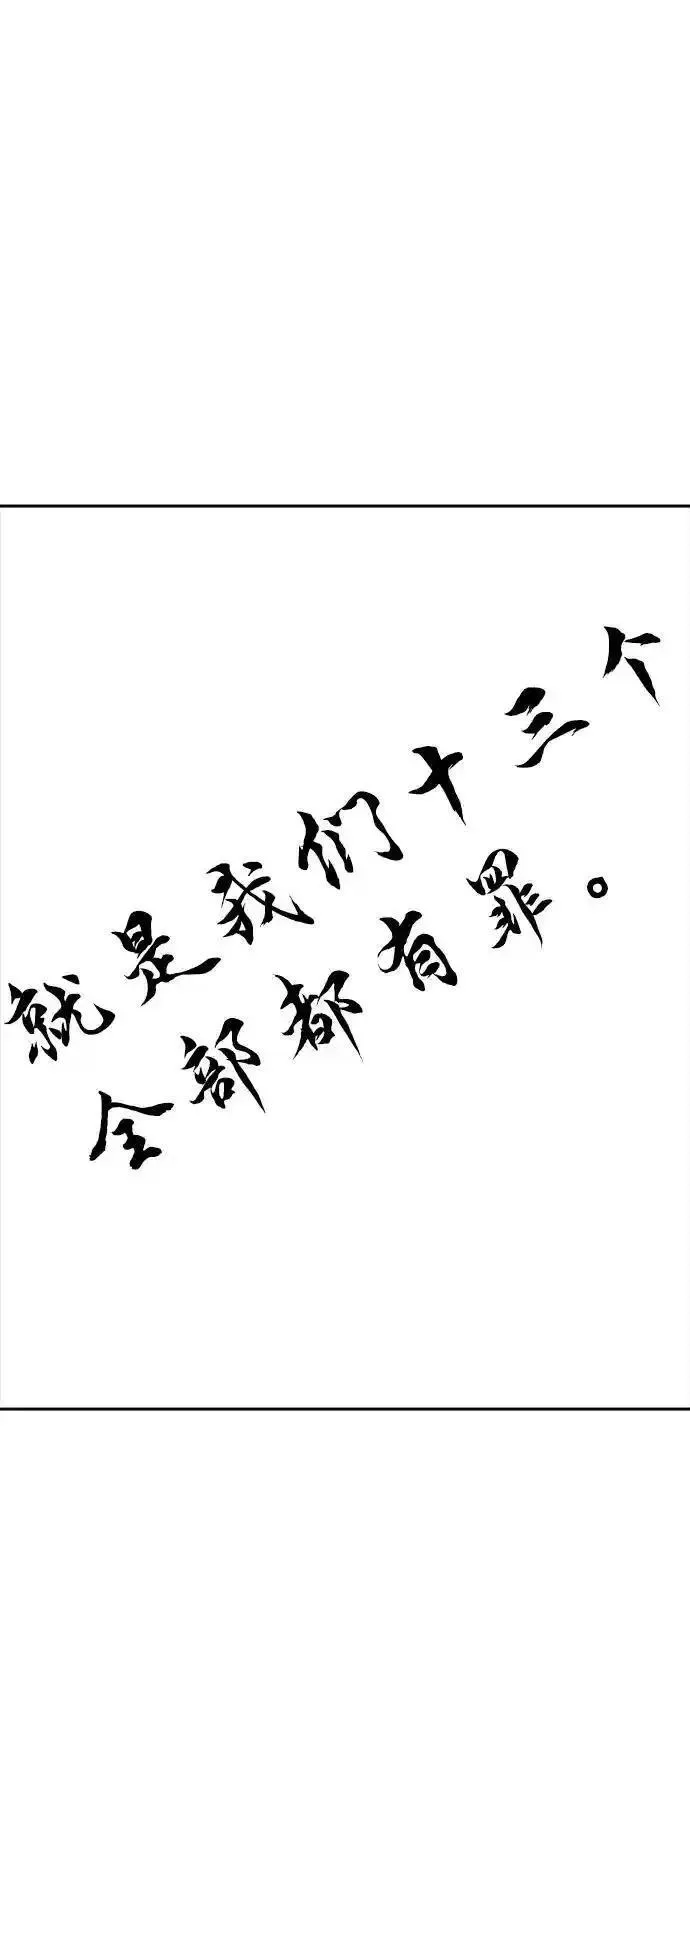 就是我们十三个
全部都有罪。